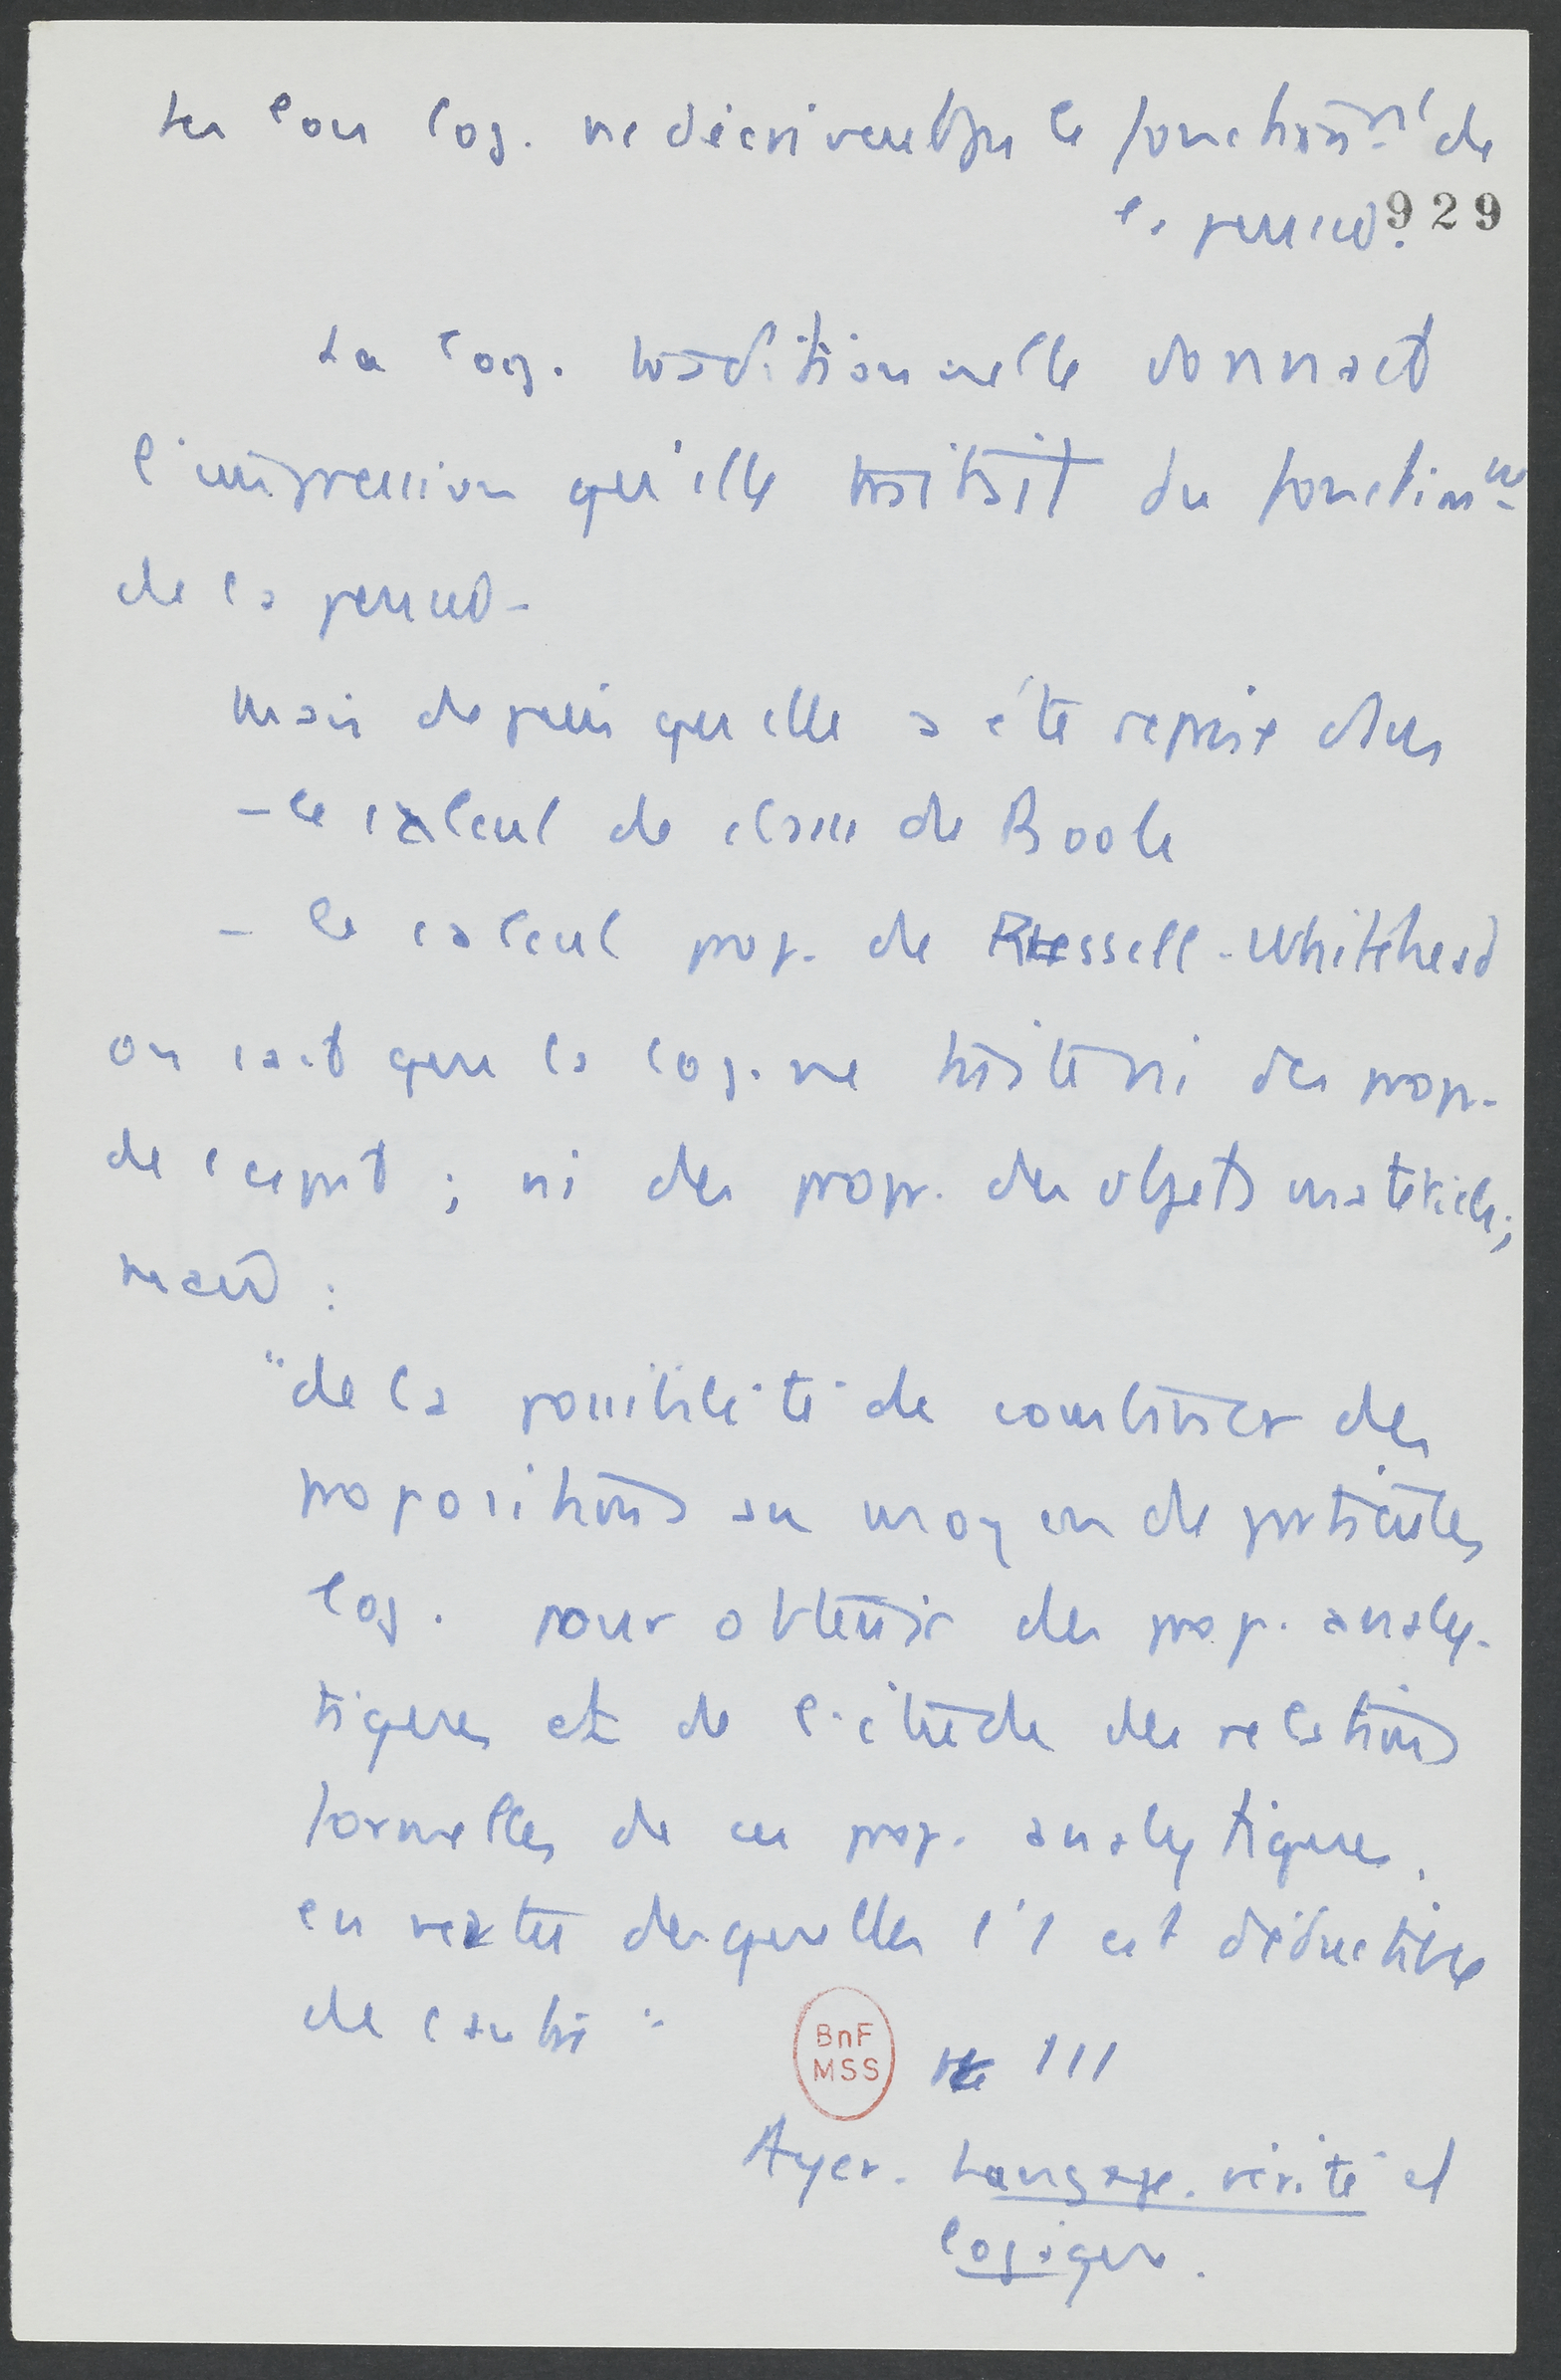 Les lois log. ne décrivent pas le fonctionnt de
la pensée.
929
La log. traditionnelle donnait
l'impression qu'elle traitait du fonctionnt
de la pensée.
Mais depuis qu'elle a été reprise dans
- le calcul de classes de Boole
- le calcul prop. de Russell-Whitehead
on sait que la log. ne traite ni des propr.
de l'esprit ; ni des propr. des objets matériels ;
mais :
"de la possibilité de combiner des
propositions au moyen de particules
log. pour obtenir des prop. analy-
tiques et de l'étude des relations
formelles de ces prop. analytiques,
en vertu desquelles l'1 est déductible
de l'autre"
BnF
MSS
111
Ayer. Langage, vérité et
logique.